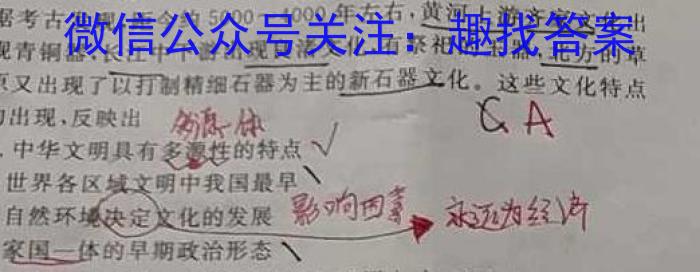 微信公众号关注：趣找答案
据考古发现，距今约5000—4000年左右，黄河上游齐家文化出
现青铜器，长江中下游出现
北方的草
原又出现了以打制精细石器为主的新石器文化。这些文化特点
的出现，反映出
多源一体
C A
.中华文明具有多源性的特点 √
世界各区域文明中我国最早
自然环境决定文化的发展 影响因素 永远为经济
家国一体的早期政治形态